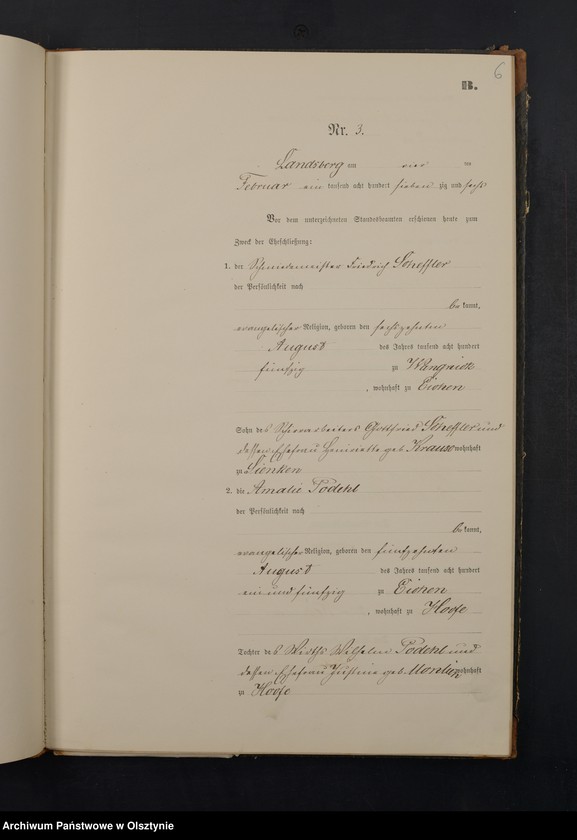 6
B.
Nr. 3.
Landsberg am vier ten
Februar ein tausend acht hundert sieben zig und sechs
Vor dem unterzeichneten Standesbeamten erschienen heute zum
Zweck der Eheschließung:
1. der Schmiedemeister Friedrich Scheffler
der Persönlichkeit nach
be kannt,
evangelischer Religion, geboren den sechszehnten
August des Jahres tausend acht hundert
fünfzig zu Wangnick
, wohnhaft zu Eichen
Sohn des Gottfried Scheffler und
dessen Ehefrau Henriette geb. Krause wohnhaft
zu Lienken
2. die Amalie Podehl
der Persönlichkeit nach
be kannt,
evangelischer Religion, geboren den fünfzehnten
August des Jahres tausend acht hundert
ein und fünfzig zu Eichen
, wohnhaft zu Hoofe
Tochter des Wirths Wilhelm Podehl und
dessen Ehefrau Justine geb. wohnhaft
zu Hoofe
Archiwum Państwowe w Olsztynie